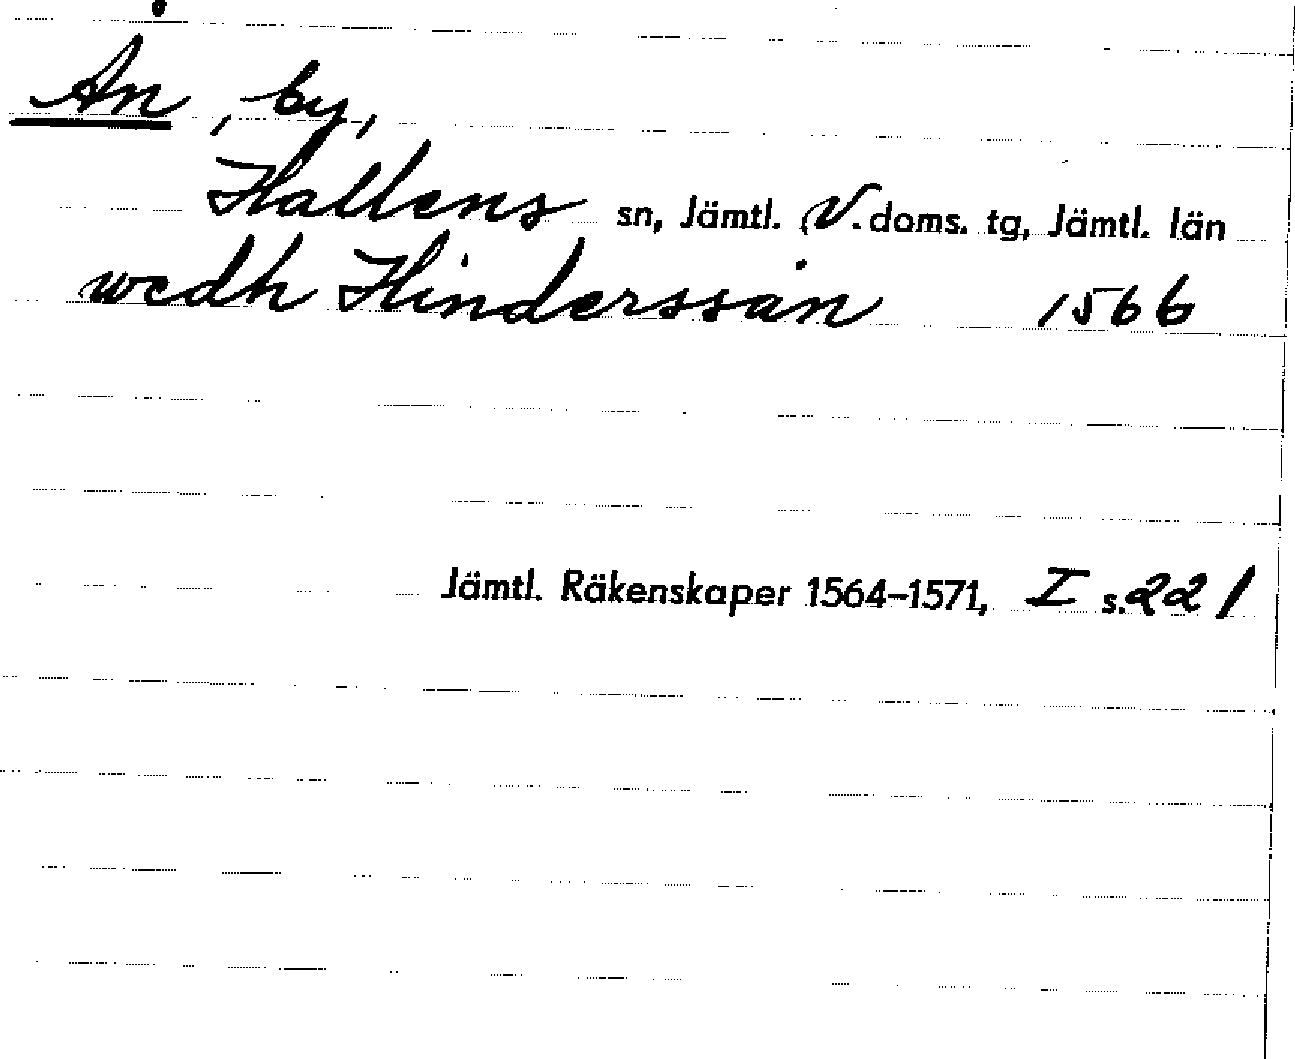 Ån, by,
Hallens sn, Jämtl. V. doms. tg, Jämtl. län
wedh Hinderssån 1566
Jämtl. Räkenskaper 1564-1571, I s. 221